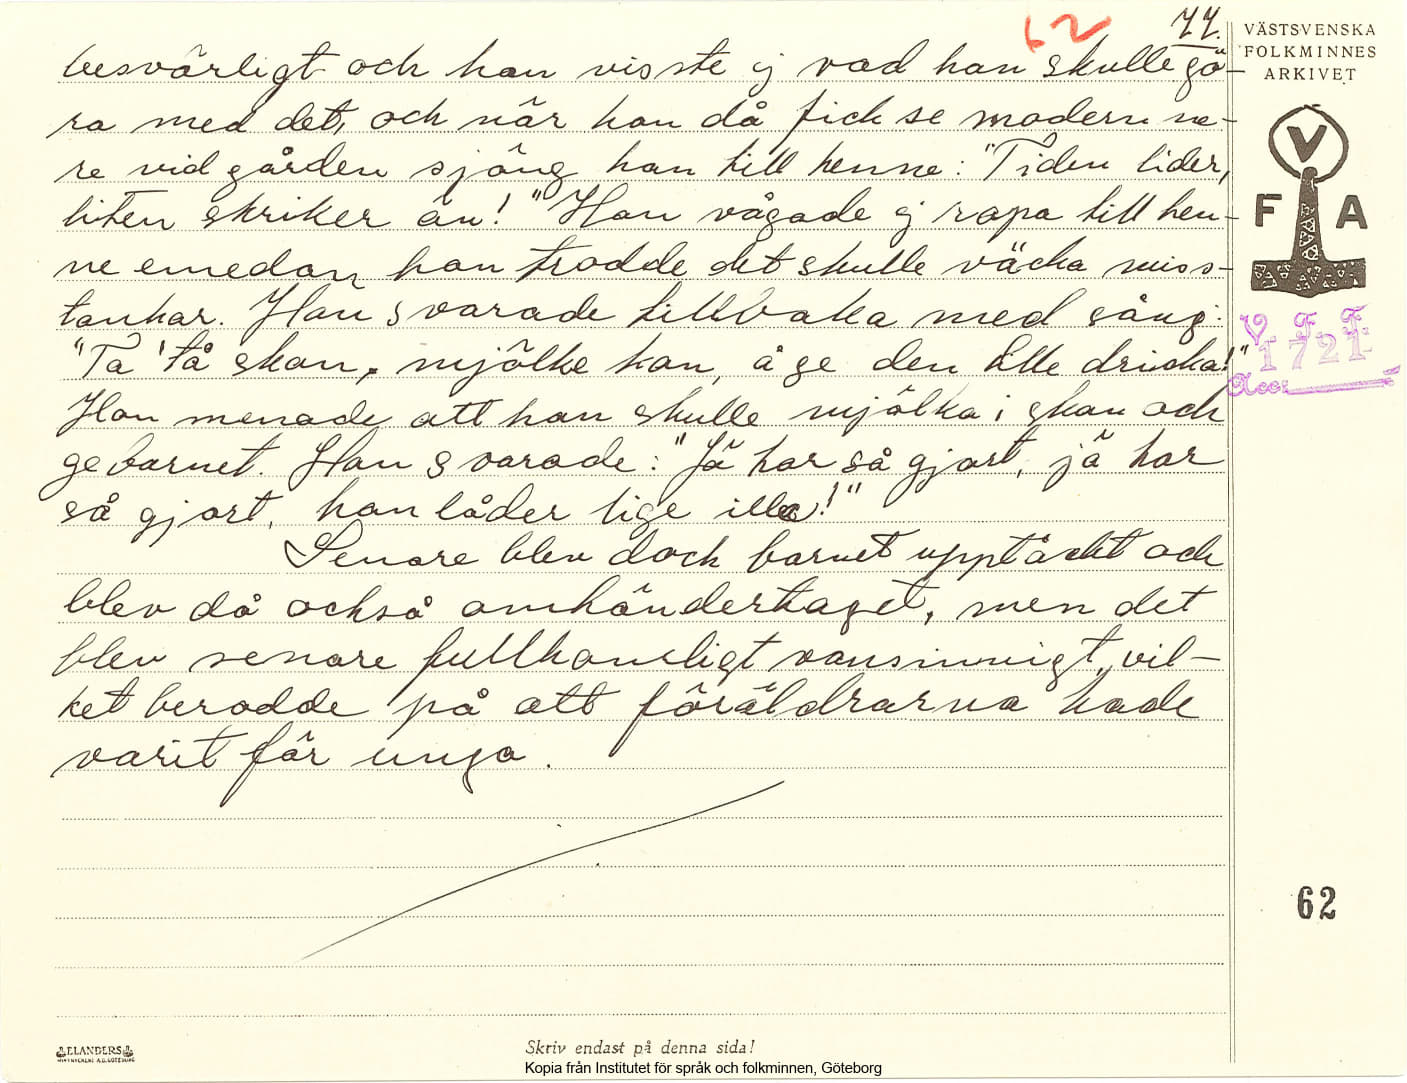 62
77.
besvärligt och han visste ej vad han skulle gö-
ra med det, och när han då fick se modern ne-
re vid gården sjöng han till henne: "Tiden lider,
liten skriker än!" Han vågade ej ropa till hen-
ne emedan han trodde det skulle väcka miss-
tankar. Hon svarade tillbaka med sång:
"Ta 'tå skon, mjölke kon, å ge den lille dricka!"
Hon menade att han skulle mjölka i skon och
ge barnet. Han svarade: "Jä har så gjort, jä har
så gjort, han låder lige illa!"
Senare blev dock barnet upptäckt och
blev då också omhändertaget, men det
blev senare fullkomligt vansinnigt, vil-
ket berodde på att föräldrarna hade
varit för unga.
VÄSTSVENSKA
FOLKMINNES
ARKIVET
V
F A
V. F. F.
1721
Acc.
62
ELANDERS
Skriv endast på denna sida!
Kopia från Institutet för språk och folkminnen, Göteborg